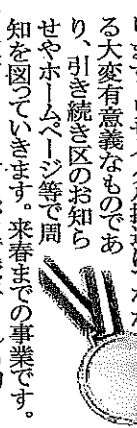 る大変有意義なものであ
り、引き続き区のお知ら
せやホームページ等で周
知を図っていきます。来春までの事業です。